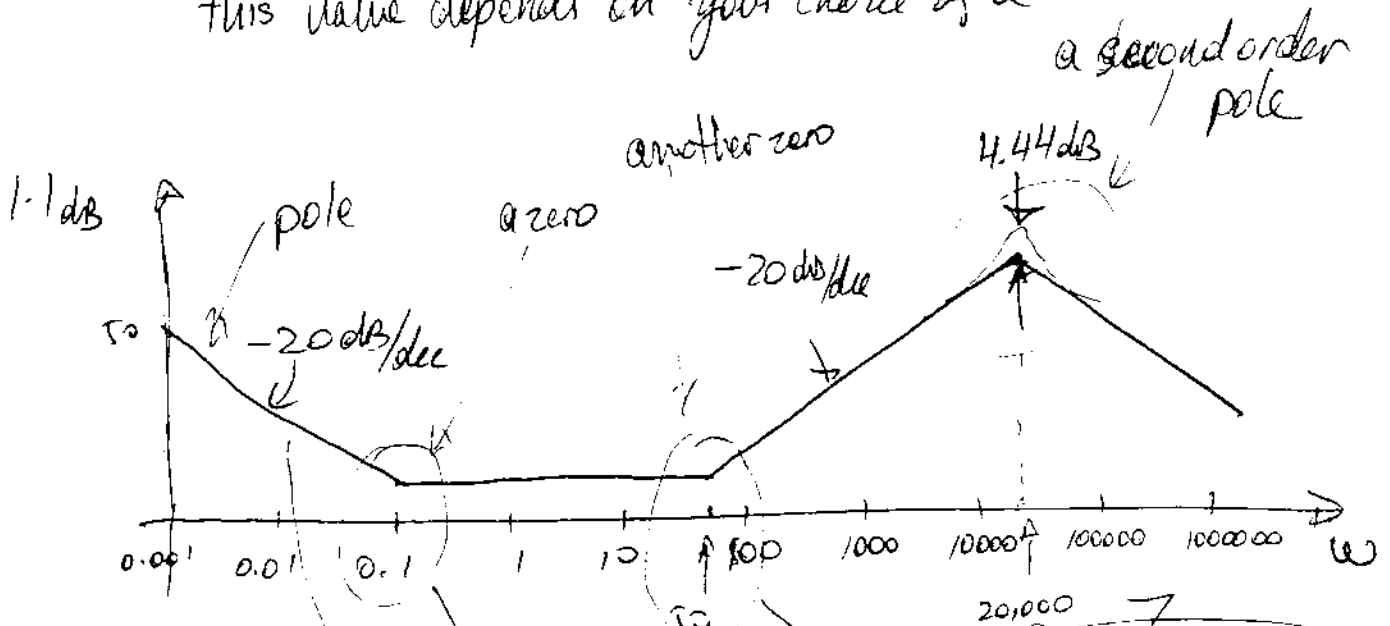 this value depends on your choice of
a second order
pole
another zero
4.44dB
|·|dB
pole
a zero
-20dB/dec
50
-20dB/dec
0.001 0.01 0.1 1 10 100 1000 10000 100000 1000000 ω
50
20,000